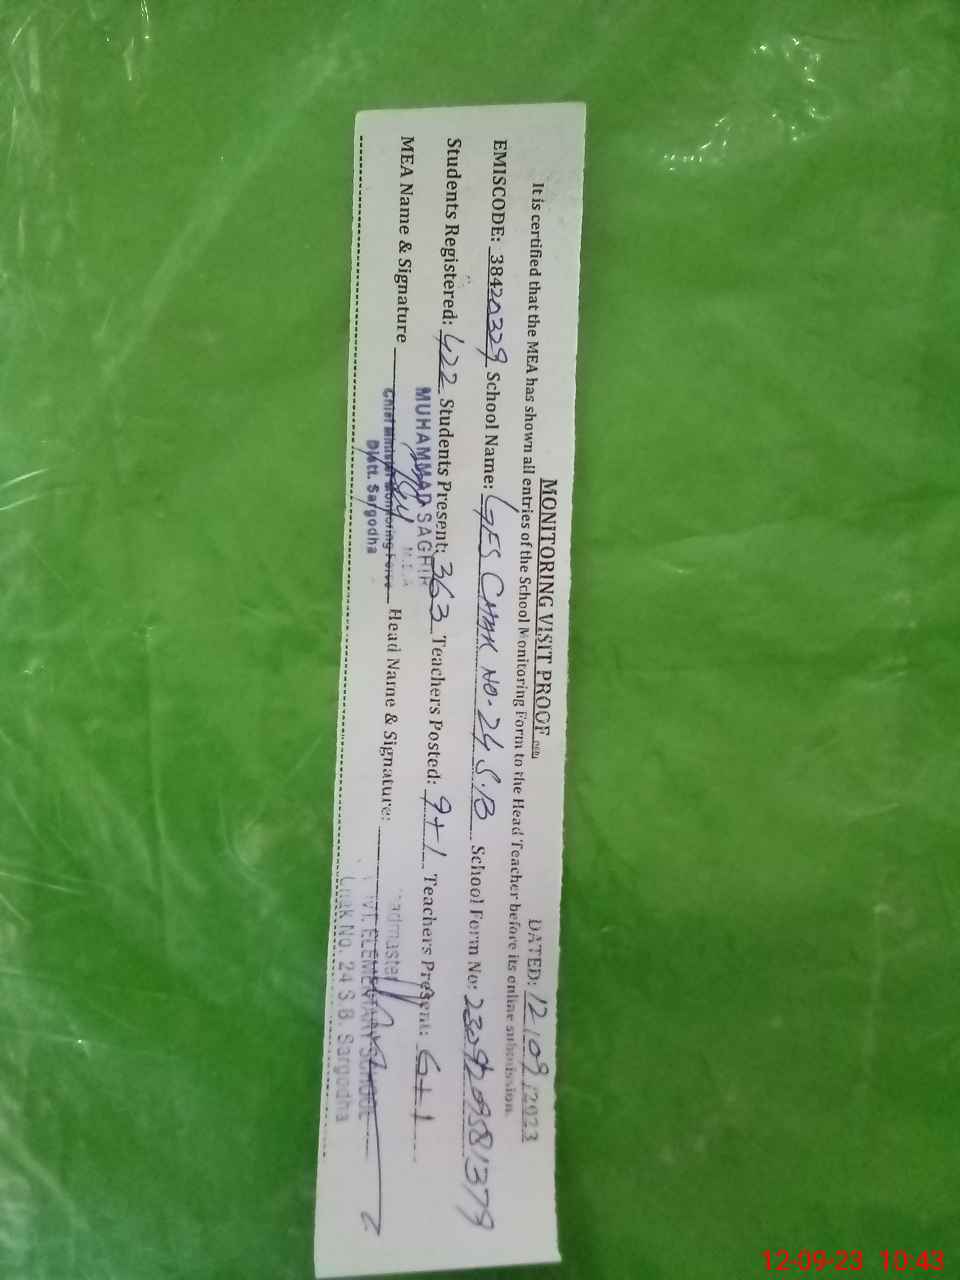 MONITORING VISIT PROOF
DATED: 12/09/2023
It is certified that the MEA has shown all entries of the School Monitoring Form to the Head Teacher before its online submission.
EMISCODE: 38420329 School Name: GES CHAK NO. 24 S.B School Form No:
Students Registered: 422 Students Present: 363 Teachers Posted: 9+1 Teachers Present: 6+1
MEA Name & Signature Head Name & Signature:
MUHAMMAD SAGHIR
M.E.A
Chief Minister Monitoring Force
Distt. Sargodha
Headmaster
GOVT. ELEMENTARY SCHOOL
Chak No. 24 S.B. Sargodha
12-09-23 10:43